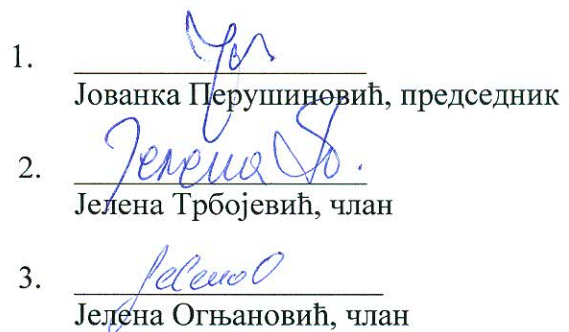 1.
Јованка Перушиновић, председник
2. Јелена
Јелена Трбојевић, члан
3.
Јелена Огњановић, члан